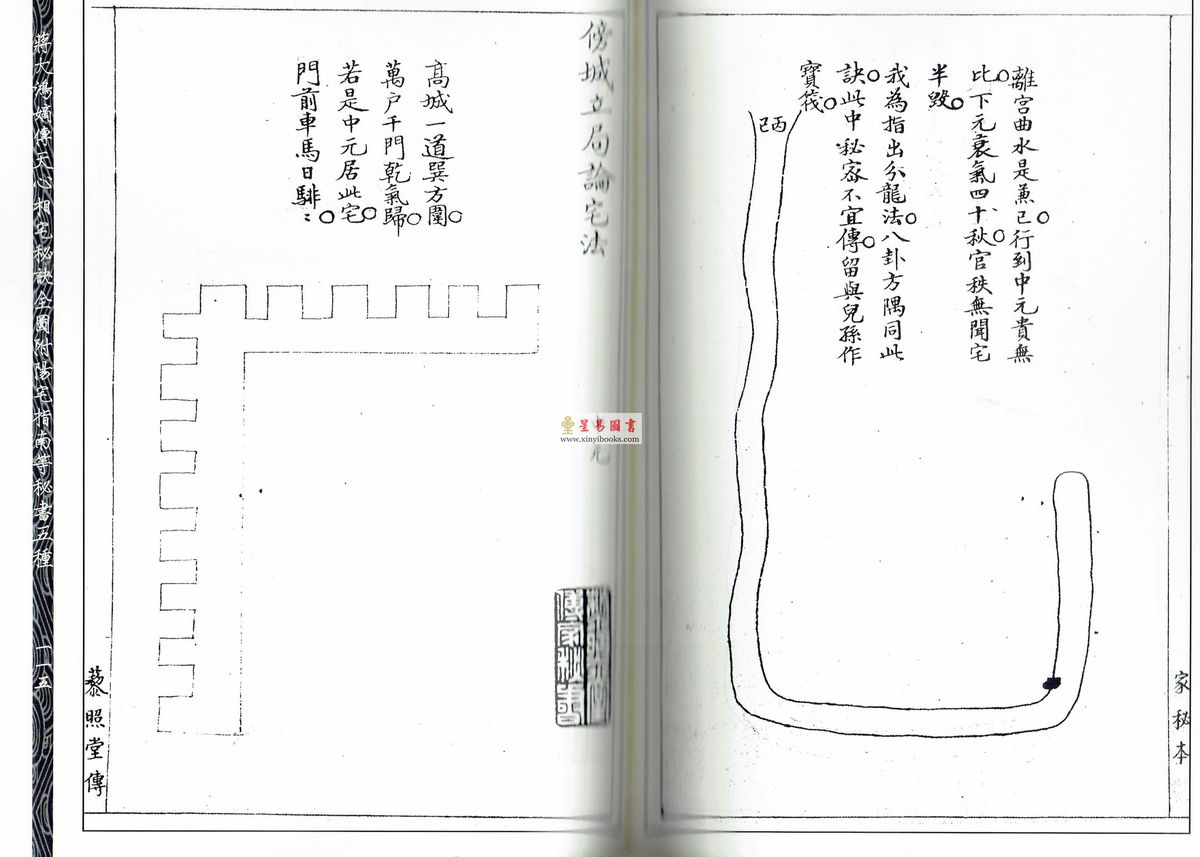 離宮曲水是兼巳行到中元貴無
比下元衰氣四十秋官秩無聞宅
半毀
我為指出分龍法八卦方隅同此
訣此中秘密不宜傳留與兒孫作
寶筏
丙
巳
家秘本
傍城立局論宅法
元
高城一道巽方圍
萬戶千門乾氣歸
若是中元居此宅
門前車馬日騑〻
傳家秘書
藜照堂傳
蔣大鴻嫡傳天心相宅秘訣全圖附陽宅指南等秘書五種
一一五
星易圖書
www.xinyibooks.com